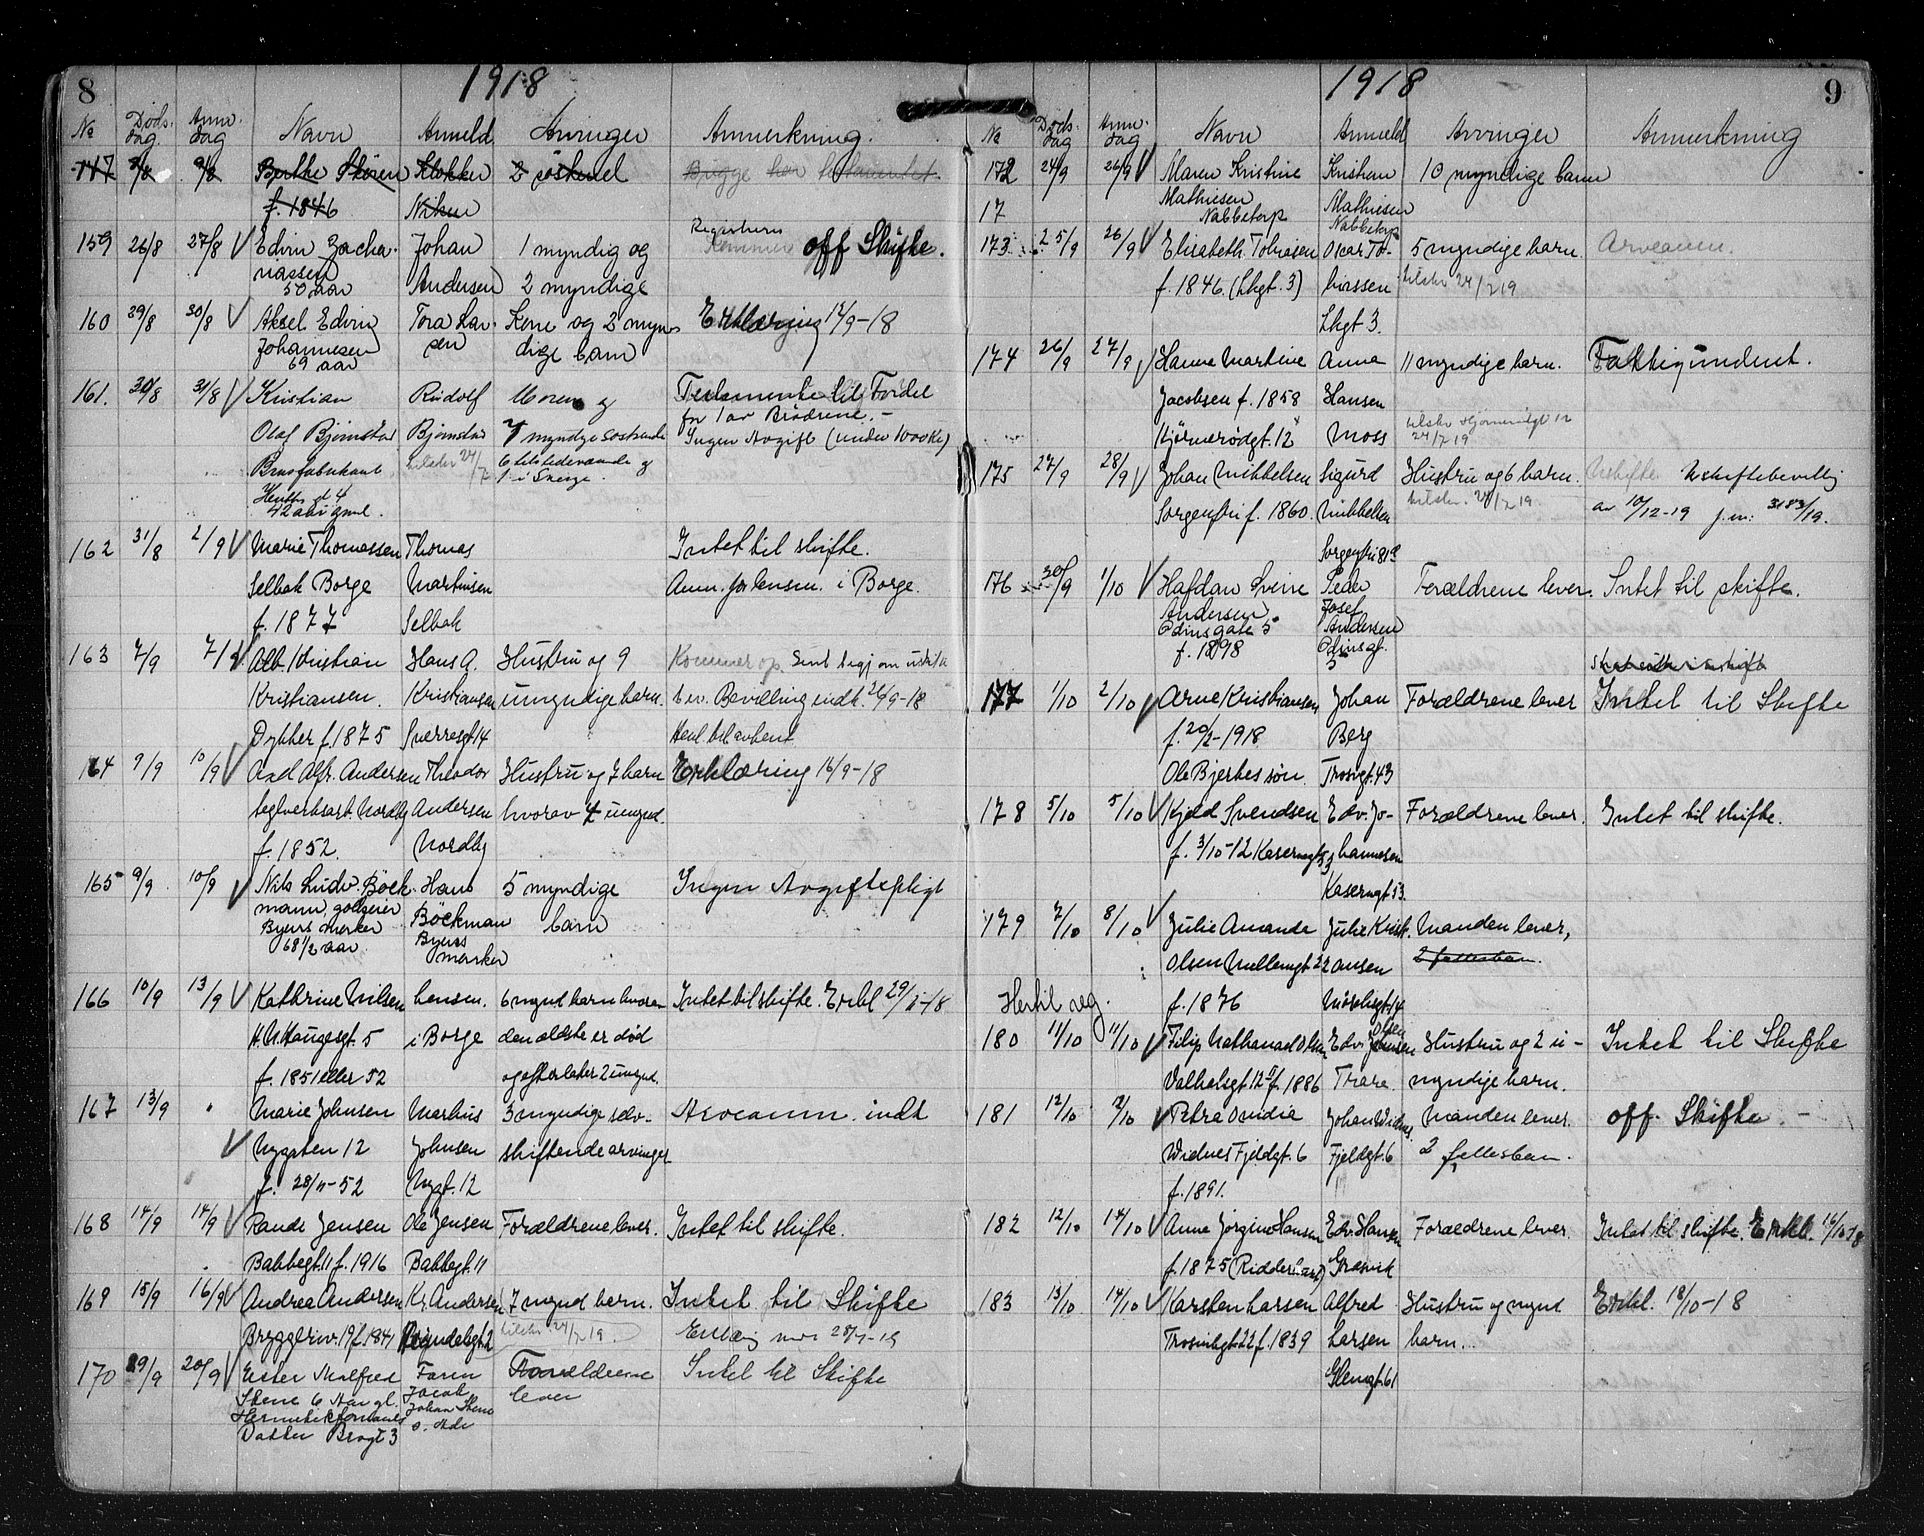 8
1918
No Døds-dag Anm.-dag Navn Anmeld Arvinger Anmerkning.
147 9/8 9/8 Berthe Skören Klokker 2 søskend Brügge har testamentet.
f. 1846
159 26/8 27/8 V Edvin Zacha- Johan 1 myndig og Registreres Kommer off Skifte.
riassen Andersen 2 myndige
50 aar
160 29/8 30/8 V Aksel Edvin Tora Lar- Kone og 2 myn- Erklæring 14/9-18
Johannesen sen dige barn
69 aar
161. 30/8 31/8 V Kristian Rudolf Moren og Testamente til Fordel
Olaf Bjørnstad Bjørnstad 7 myndige søskende for 1 av Brødrene. -
Brusfabrikant tilskr 24/7 6 tilstedeværende og Ingen Avgift (under 1000 Kr)
1 i Sverge.
42 aar gml.
162 31/8 2/9 V Marie Thomassen Thomas Intet til skifte.
Selbak Borge Martinsen Anm. for lensm. i Borge.
f. 1877 Selbak
163 7/9 7/9 V Alb. Kristian Hans A. Hustru og 9 Kommer op.
Kristiansen. Kristiansen umyndige barn. Bevilling indk. 26/9-18
Dykker f. 1875 Sverresgt 14
164 9/9 10/9 V Axel Alfr. Andersen Theodor Hustru og 7 barn Erklæring 16/9-18
teglverksarb. Nordby Andersen hvorav 4 umynd.
f. 1852. Nordby
165 9/9 10/9 V Nils Ludv. Böck- Hans 5 myndige Ingen Avgiftspligt
mann, godseier Böckman barn
Byens marker Byens
68 1/2 aar marker
166 10/9 13/9 V Kathrine Nilsen Lensm. 6 mynd barn hvorav Intet til skifte. Erkl 29/1-18
H.N. Haugesgt. 5 i Borge den ældste er død
f. 1851 eller 52 og efterlater 2 umynd.
167 13/9 " V Marie Johnsen Marhus 3 myndige selv- Arveanm. indk
Nygaten 12 Johnsen skiftende arvinger
f. 28/11-52 Nygt. 12
168 14/9 14/9 V Randi Jensen Ole Jensen Forældrene lever. Intet til skifte.
Bakkegt. 11 f. 1916 Bakkegt. 11
169 15/9 16/9 V Andrea Andersen Kr. Andersen 7 mynd barn. Intet til Skifte
Bryggeriv. 19 f. 1841 tilskr 24/2 19.
170 19/9 20/9 V Ester Malfred Faren Forældrene Intet til Skifte
Skene 6 Aar gl. Jacob lever
Hermetikformands Johan Skene
Datter Brogt 3
9
1918
No Døds-dag Anm.-dag Navn Anmeld Arvinger Anmerkning
172 24/9 26/9 V Maren Kristine Kristian 10 myndige barn
17 Mathisen Mathiesen
Nabbetorp Nabbetorp
173 25/9 26/9 V Elisabeth Tobiasen Oscar To- 5 myndige barn. Arveanm.
f. 1846. (Lkgt. 3) biassen tilskr 24/2 19
Lkgt 3.
174 26/9 27/9 V Hanne Martine Anna 11 myndige barn. Fattigunderst.
Jacobsen f. 1858 Hansen
Kjörnerødgt. 12 Moss tilskr Hjørnerødgt 12
24/2 19
175 27/9 28/9 V Johan Mikkelsen Sigurd Hustru og 6 barn. Uskifte. Uskiftebevillig
Sorgenfri f. 1860. Mikkelsen tilskr. 24/2 19. av 10/12-19 j.nr. 3183/19.
Sorgenfri
176 30/9 1/10 V Hafdan Sveine Peder Forældrene lever. Intet til skifte.
Andersen Josef
Odinsgate 5 Andersen
f. 1898 Odinsgt.
5
177 1/10 2/10 V Arne Kristiansen Johan Forældrene lever Intet til Skifte
f. 20/2-1918 Berg
Ole Bjerkes søn. Trosvigt. 43
178 5/10 5/10 V Kjeld Svendsen Edv. Jo- Forældrene lever. Intet til skifte.
f. 3/10-12 Kasernegt 53 hannesen
Kaserngt 53.
179 7/10 8/10 V Julie Amanda Julie Krist- Manden lever,
Olsen Møllengt 22 ansen 2 fellesbarn.
Hertil reg. f. 1876
180 11/10 11/10 V Filip Nathanael Olsen Edv. Olsen Hustru og 2 u- Intet til Skifte
Valhalsgt 12 f. 1886 Trara myndige barn.
181 12/10 12/10 V Petra Ovidia Johan Widnes. Manden lever. off. Skifte. -
Widnes Fjeldgt. 6 Fjeldgt. 6 2 fellesbarn.
f. 1891.
182 12/10 14/10 V Anne Jørgine Hansen Edv. Hansen Forældrene lever. Intet til skifte. Erkl. 16/10 18
f. 1875 Gresvik
183 13/10 14/10 V Karsten Larsen Alfred Hustru og mynd. Erkl. 18/10-18
Trosvikgt. 22 f. 1839 Larsen barn.
Glemgt. 61